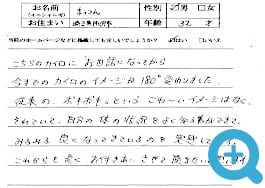 お名前 まっつん 性別 ☑男 □女
(イニシャル可)
お住まい 年齢 32 才
当院のホームページなどに掲載しても宜しいでしょうか? ☑はい □いいえ
こちらのカイロに お世話になってから
今までのカイロのイメージが180°変わりました。
従来の、ボキボキッという こわ〜いイメージはなく、
それでいて、自分の体の状況をよく知る事ができて、
みるみる 良くなってきているのを 実感して
これからも 長く お付きあい させて 頂きたい